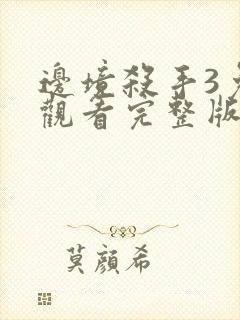 邊境殺手3免
觀看完整版
莫顏希